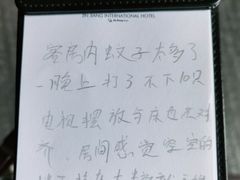 JIN JIANG INTERNATIONAL HOTEL
客房内蚊子太多了
一晚上打了不下10只
电视摆放与床位不对
齐、房间感觉空空的